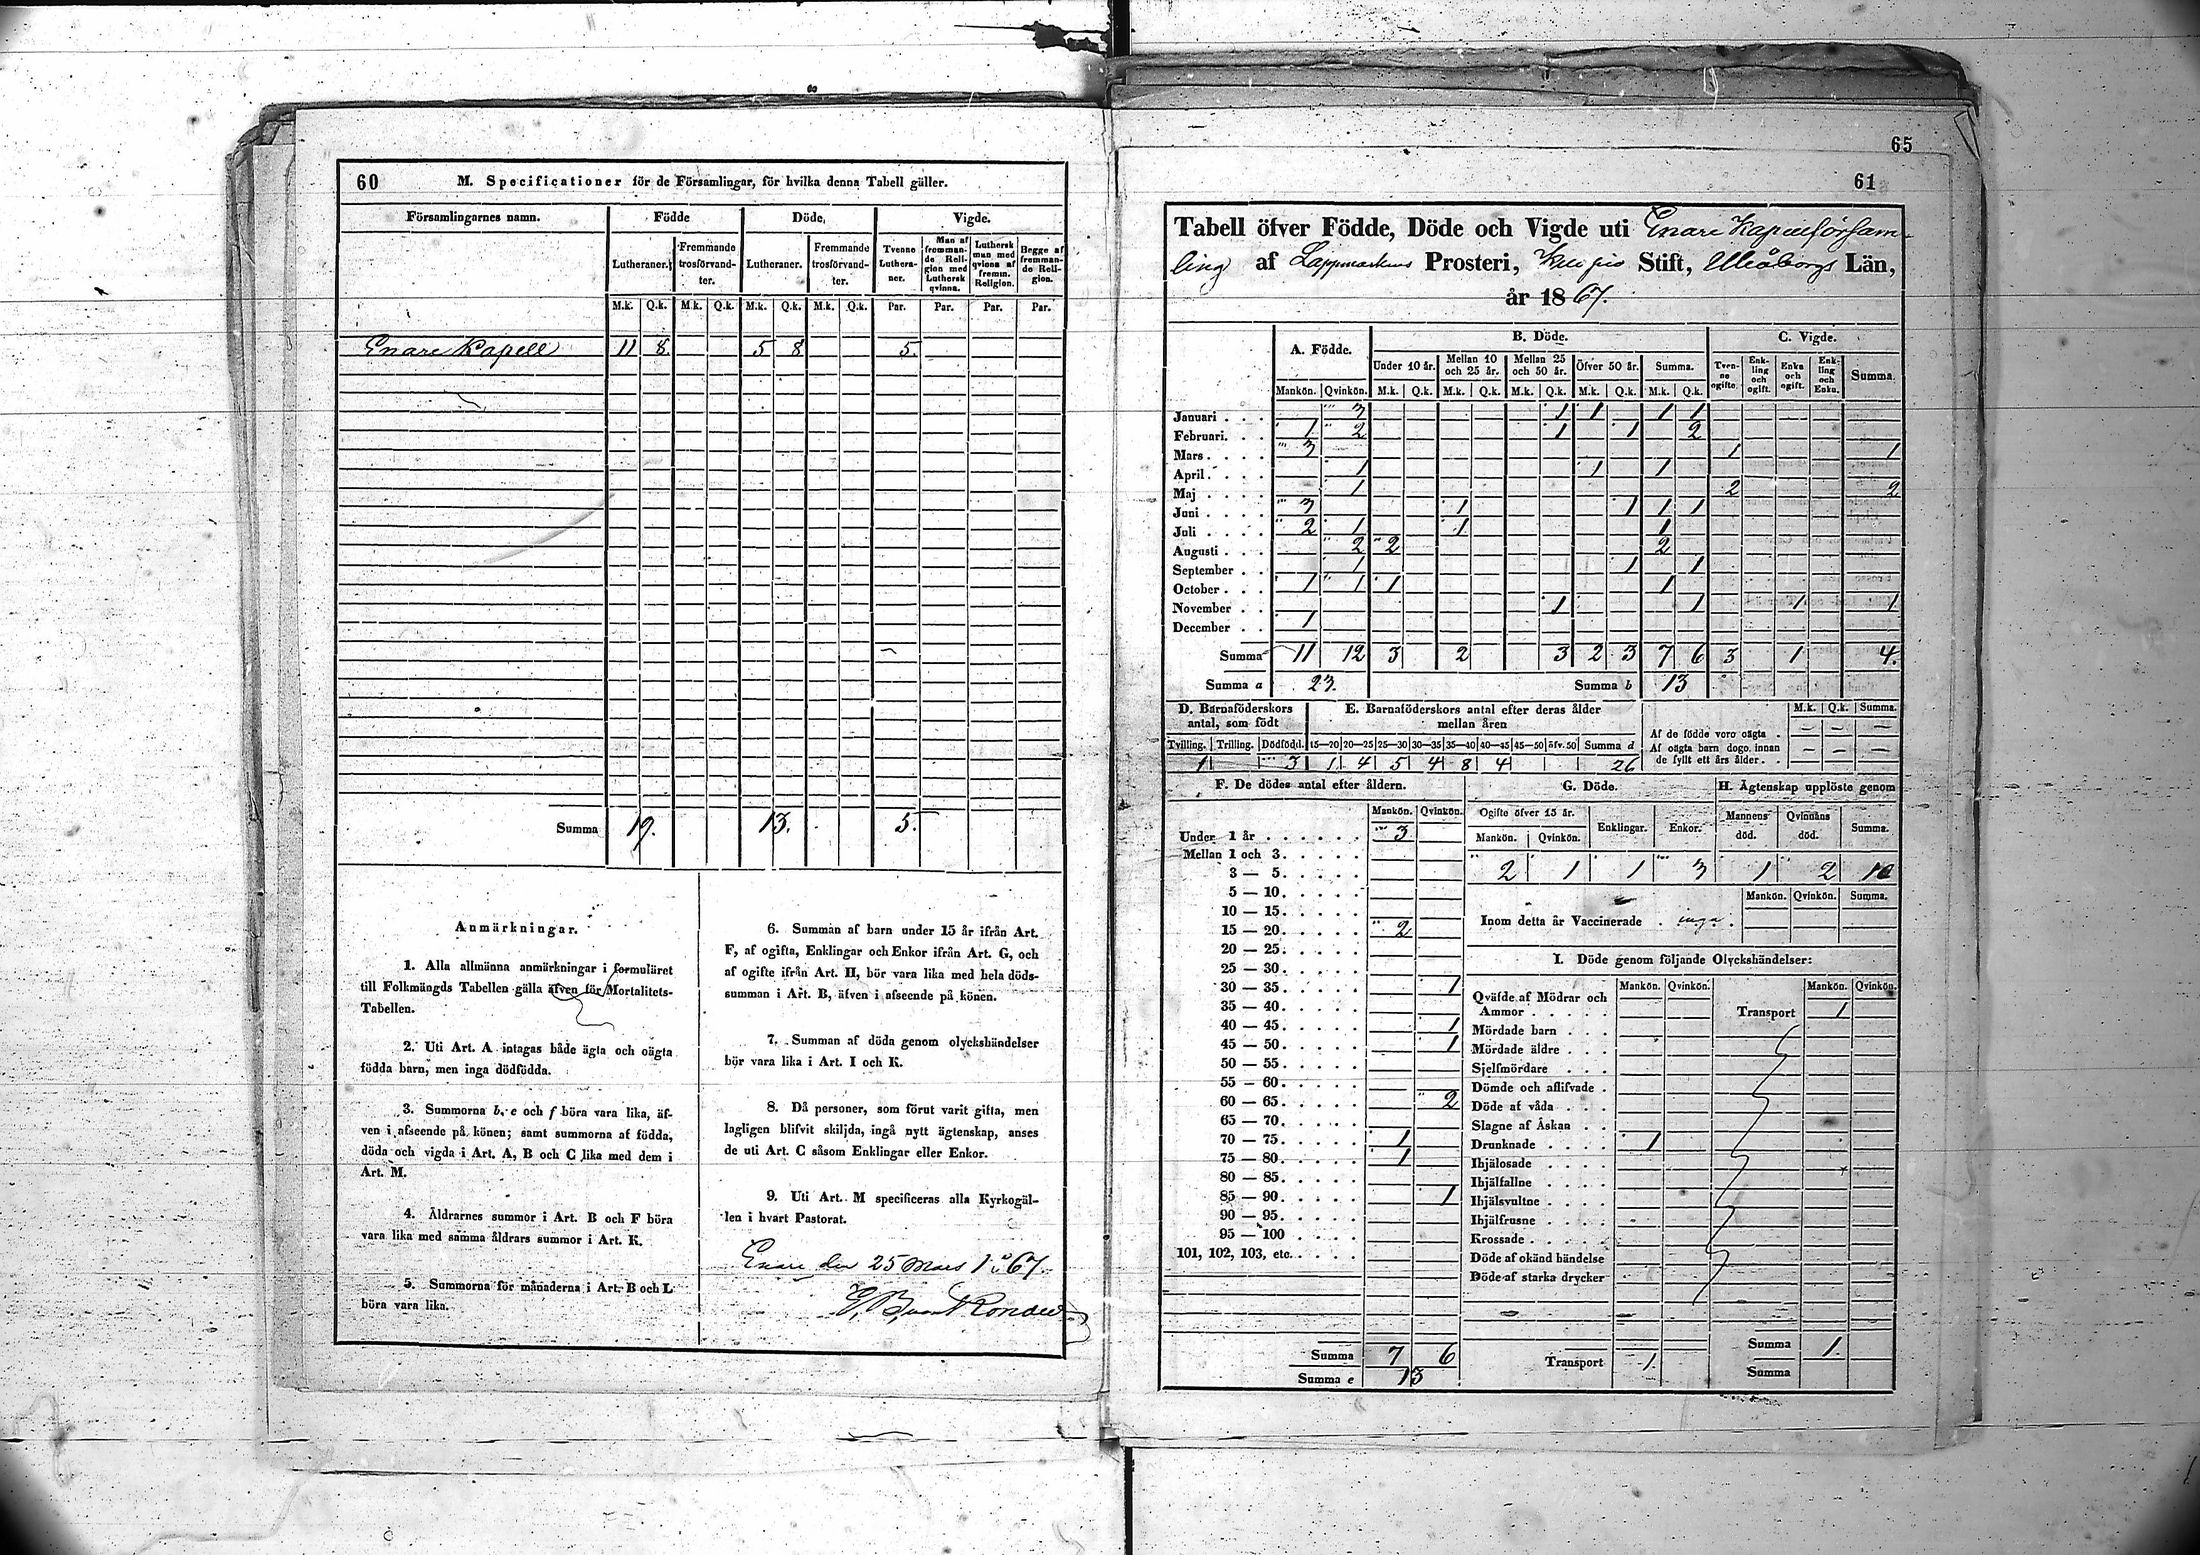 60 M. Specificationer för de Församlingar, för hvilka denna Tabell gäller.
Församlingarnes namn. Födde Döde. Vigde.
Lutheraner. Fremmande trosförvandter. Lutheraner. Fremmande trosförvandter. Tvenne Lutheraner. Man af fremmande Religion med Luthersk qvinna. Luthersk man med qvinna af fremm. Religion. Begge af fremmande Religion.
M.k. Q.k. M.k. Q.k. M.k. Q.k. M.k. Q.k. Par. Par. Par. Par.
Enare Kapell 11 8. 5 8 5.
Summa 19. 13. 5.
Anmärkningar.
1. Alla allmänna anmärkningar i formuläret
till Folkmängds Tabellen gälla äfven för Mortalitets-
Tabellen.
2. Uti Art. A intagas både ägta och oägta
födda barn, men inga dödfödda.
3. Summorna b, e och f böra vara lika, äf-
ven i afseende på könen; samt summorna af födda,
döda och vigda i Art. A, B och C lika med dem i
Art. M.
4. Åldrarnes summor i Art. B och F böra
vara lika med samma åldrars summor i Art. K.
5. Summorna för månaderna i Art. B och L
böra vara lika.
6. Summan af barn under 15 år ifrån Art.
F, af ogifta, Enklingar och Enkor ifrån Art. G, och
af ogifte ifrån Art. H, bör vara lika med hela döds-
summan i Art. B, äfven i afseende på könen.
7. Summan af döda genom olyckshändelser
bör vara lika i Art. I och K.
8. Då personer, som förut varit gifta, men
lagligen blifvit skiljda, ingå nytt ägtenskap, anses
de uti Art. C såsom Enklingar eller Enkor.
9. Uti Art. M specificeras alla Kyrkogäl-
len i hvart Pastorat.
Enare den 25 Mars 1867.
65
61
Tabell öfver Födde, Döde och Vigde uti Enare Kapellförsam-
ling af Lappmarkens Prosteri, Kuopio Stift, Uleåborgs Län,
år 1867.
A. Födde. B. Döde. C. Vigde.
Under 10 år. Mellan 10 och 25 år. Mellan 25 och 50 år. Öfver 50 år. Summa. Tvenne ogifte. Enkling och ogift. Enka och ogift. Enkling och Enka. Summa.
Mankön. Qvinkön. M.k. Q.k. M.k. Q.k. M.k. Q.k. M.k. Q.k. M.k. Q.k.
Januari . . . 3 1 1 1 1
Februari. . . 1 2 1 1 2
Mars . . . . 3 1 1
April . . . . 1 1 1
Maj . . . . 1 2 2
Juni . . . . 3 1 1 1 1
Juli . . . . 2 1 1 1
Augusti . . . 2 2 2
September . . 1 1 1
October . . . 1 1 1 1
November . . 1 1 1 1
December . . 1
Summa 11 12 3 2 3 2 3 7 6 3 1 4.
Summa a 23. Summa b 13
D. Barnaföderskors antal, som födt
E. Barnaföderskors antal efter deras ålder mellan åren
M.k. Q.k. Summa.
Af de födde voro oägta . — — —
Af oägta barn dogo innan de fyllt ett års ålder . . — — —
Tvilling. Trilling. Dödfödd. 15—20 20—25 25—30 30—35 35—40 40—45 45—50 öfv. 50 Summa d
1 3 1 4 5 4 8 4 26
F. De dödes antal efter åldern.
Mankön. Qvinkön.
Under 1 år . . . . . . 3
Mellan 1 och 3. . . . .
3 — 5. . . . .
5 — 10. . . . .
10 — 15. . . . .
15 — 20. . . . . 2
20 — 25. . . . .
25 — 30. . . . .
30 — 35. . . . . 1
35 — 40. . . . .
40 — 45. . . . . 1
45 — 50. . . . . 1
50 — 55. . . . .
55 — 60. . . . .
60 — 65. . . . . 2
65 — 70. . . . .
70 — 75. . . . . 1
75 — 80. . . . . 1
80 — 85. . . . .
85 — 90. . . . . 1
90 — 95. . . . .
95 — 100 . . . .
101, 102, 103, etc. . . . .
Summa 7 6
Summa e 13
G. Döde. H. Ägtenskap upplöste genom
Ogifte öfver 15 år. Enklingar. Enkor. Mannens död. Qvinnans död. Summa.
Mankön. Qvinkön.
2 1 1 3 1 2 10
Mankön. Qvinkön. Summa.
Inom detta år Vaccinerade . inga.
I. Döde genom följande Olyckshändelser:
Mankön. Qvinkön. Mankön. Qvinkön.
Qväfde af Mödrar och
Ammor . . . . . Transport 1
Mördade barn . . .
Mördade äldre . . .
Sjelfmördare . . .
Dömde och aflifvade .
Döde af våda . . .
Slagne af Åskan . .
Drunknade . . . . 1
Ihjälosade . . . .
Ihjälfallne . . . .
Ihjälsvultne . . . .
Ihjälfrusne . . . .
Krossade . . . . .
Döde af okänd händelse
Döde af starka drycker
Summa 1.
Transport 1.
Summa